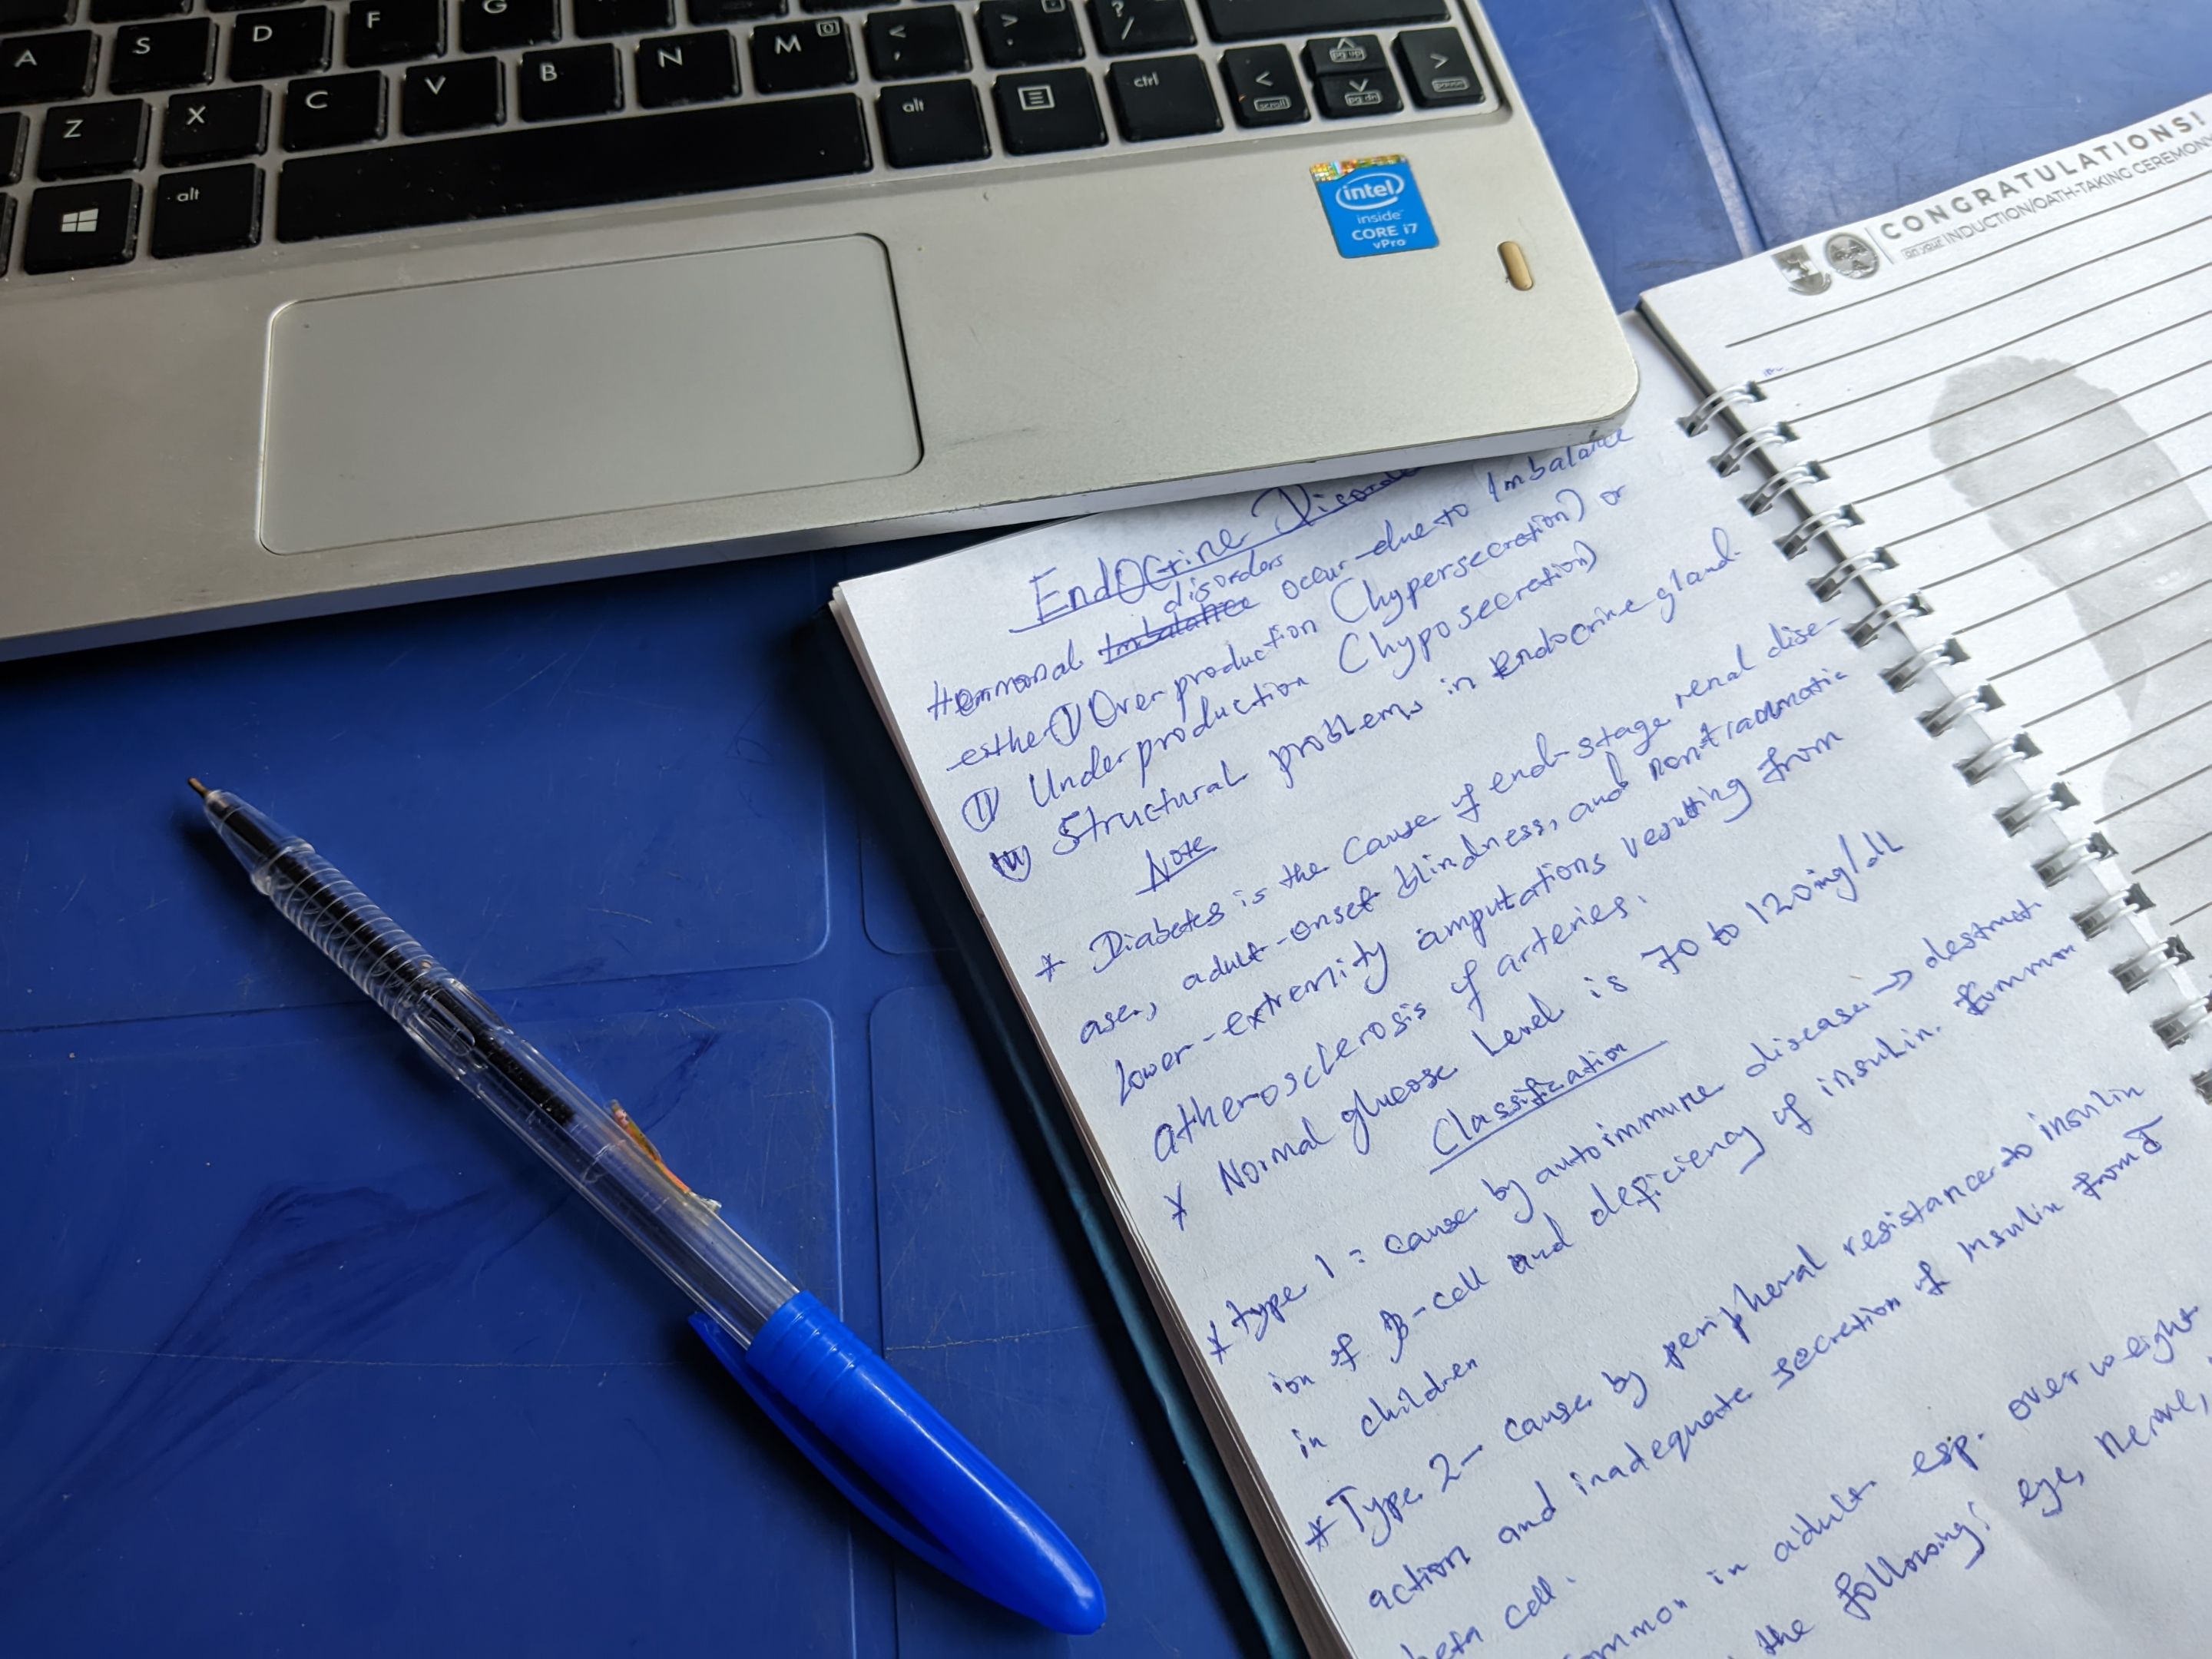 A S D F G
Z X C V B N M < , > . ? /
alt alt ctrl < scroll pg up pg dn > pause
intel
inside
CORE i7
vPro
CONGRATULATIONS!
INDUCTION/OATH-TAKING CEREMONY
Endocrine Disorde
disorders
Hormonal Imbalance occur due to Imbalance
either I Over production (hypersecretion) or
II Under production (hyposecretion)
Structural problems in Endocrine gland.
Note
* Diabetes is the cause of end-stage renal dise-
ase, adult-onset blindness, and nontraumatic
lower-extremity amputations resulting from
atherosclerosis of arteries.
* Normal glucose level is 70 to 120mg/dL
Classification
* type 1 : cause by autoimmune disease → destruct
ion of β-cell and deficiency of insulin. Common
in children
* Type 2 - cause by peripheral resistance to insulin
action and inadequate secretion of insulin from
beta cell.
ommon in adult esp. over weight
the following: eye, nerve,